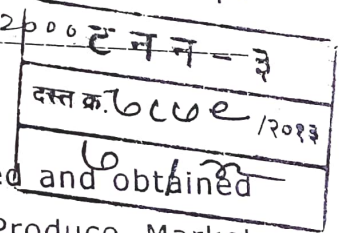 ट न न - ३
दस्त क्र. ७८७९ /२०१३
७
ed and obtained
Produce Market